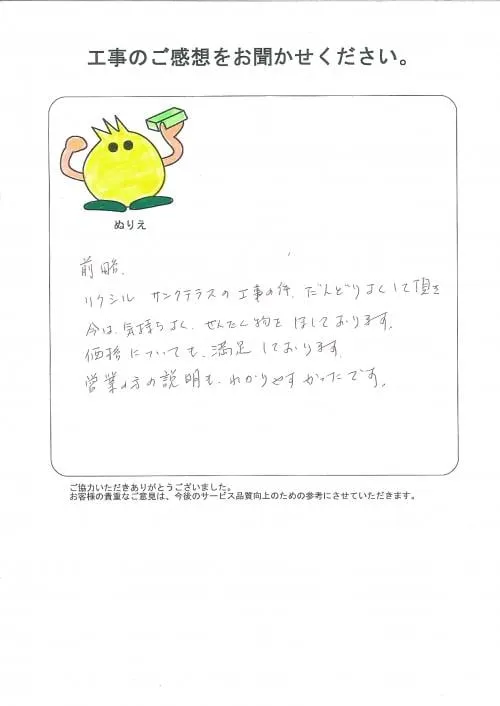 工事のご感想をお聞かせください。
ぬりえ
前略、
リクシル サンクテラスの工事の件、だんどりよくして頂き
今は、気持ちよく、せんたく物をほしております。
価格についても、満足しております。
営業の方の説明も、わかりやすかったです。
ご協力いただきありがとうございました。
お客様の貴重なご意見は、今後のサービス品質向上のための参考にさせていただきます。